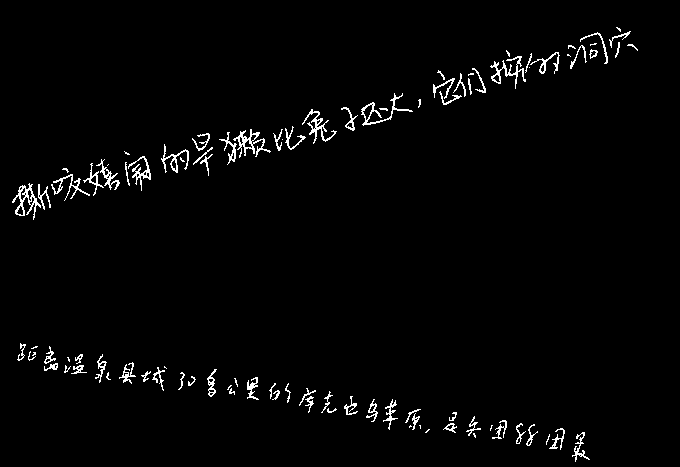 撕咬嬉闹的旱獭比兔子还大，它们挖的洞穴
距离温泉县城30多公里的库克它乌草原，是兵团88团最